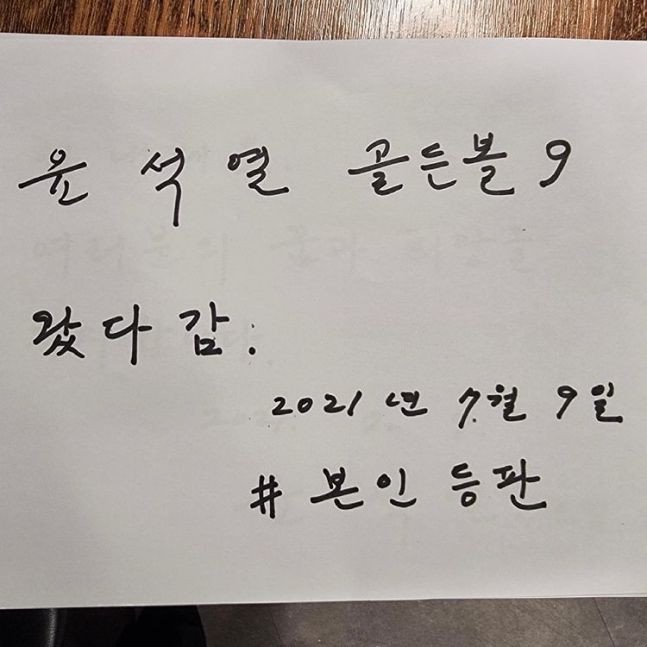 윤석열 골든볼 9
왔다감.
2021년 7.월 9일
# 본인 등판